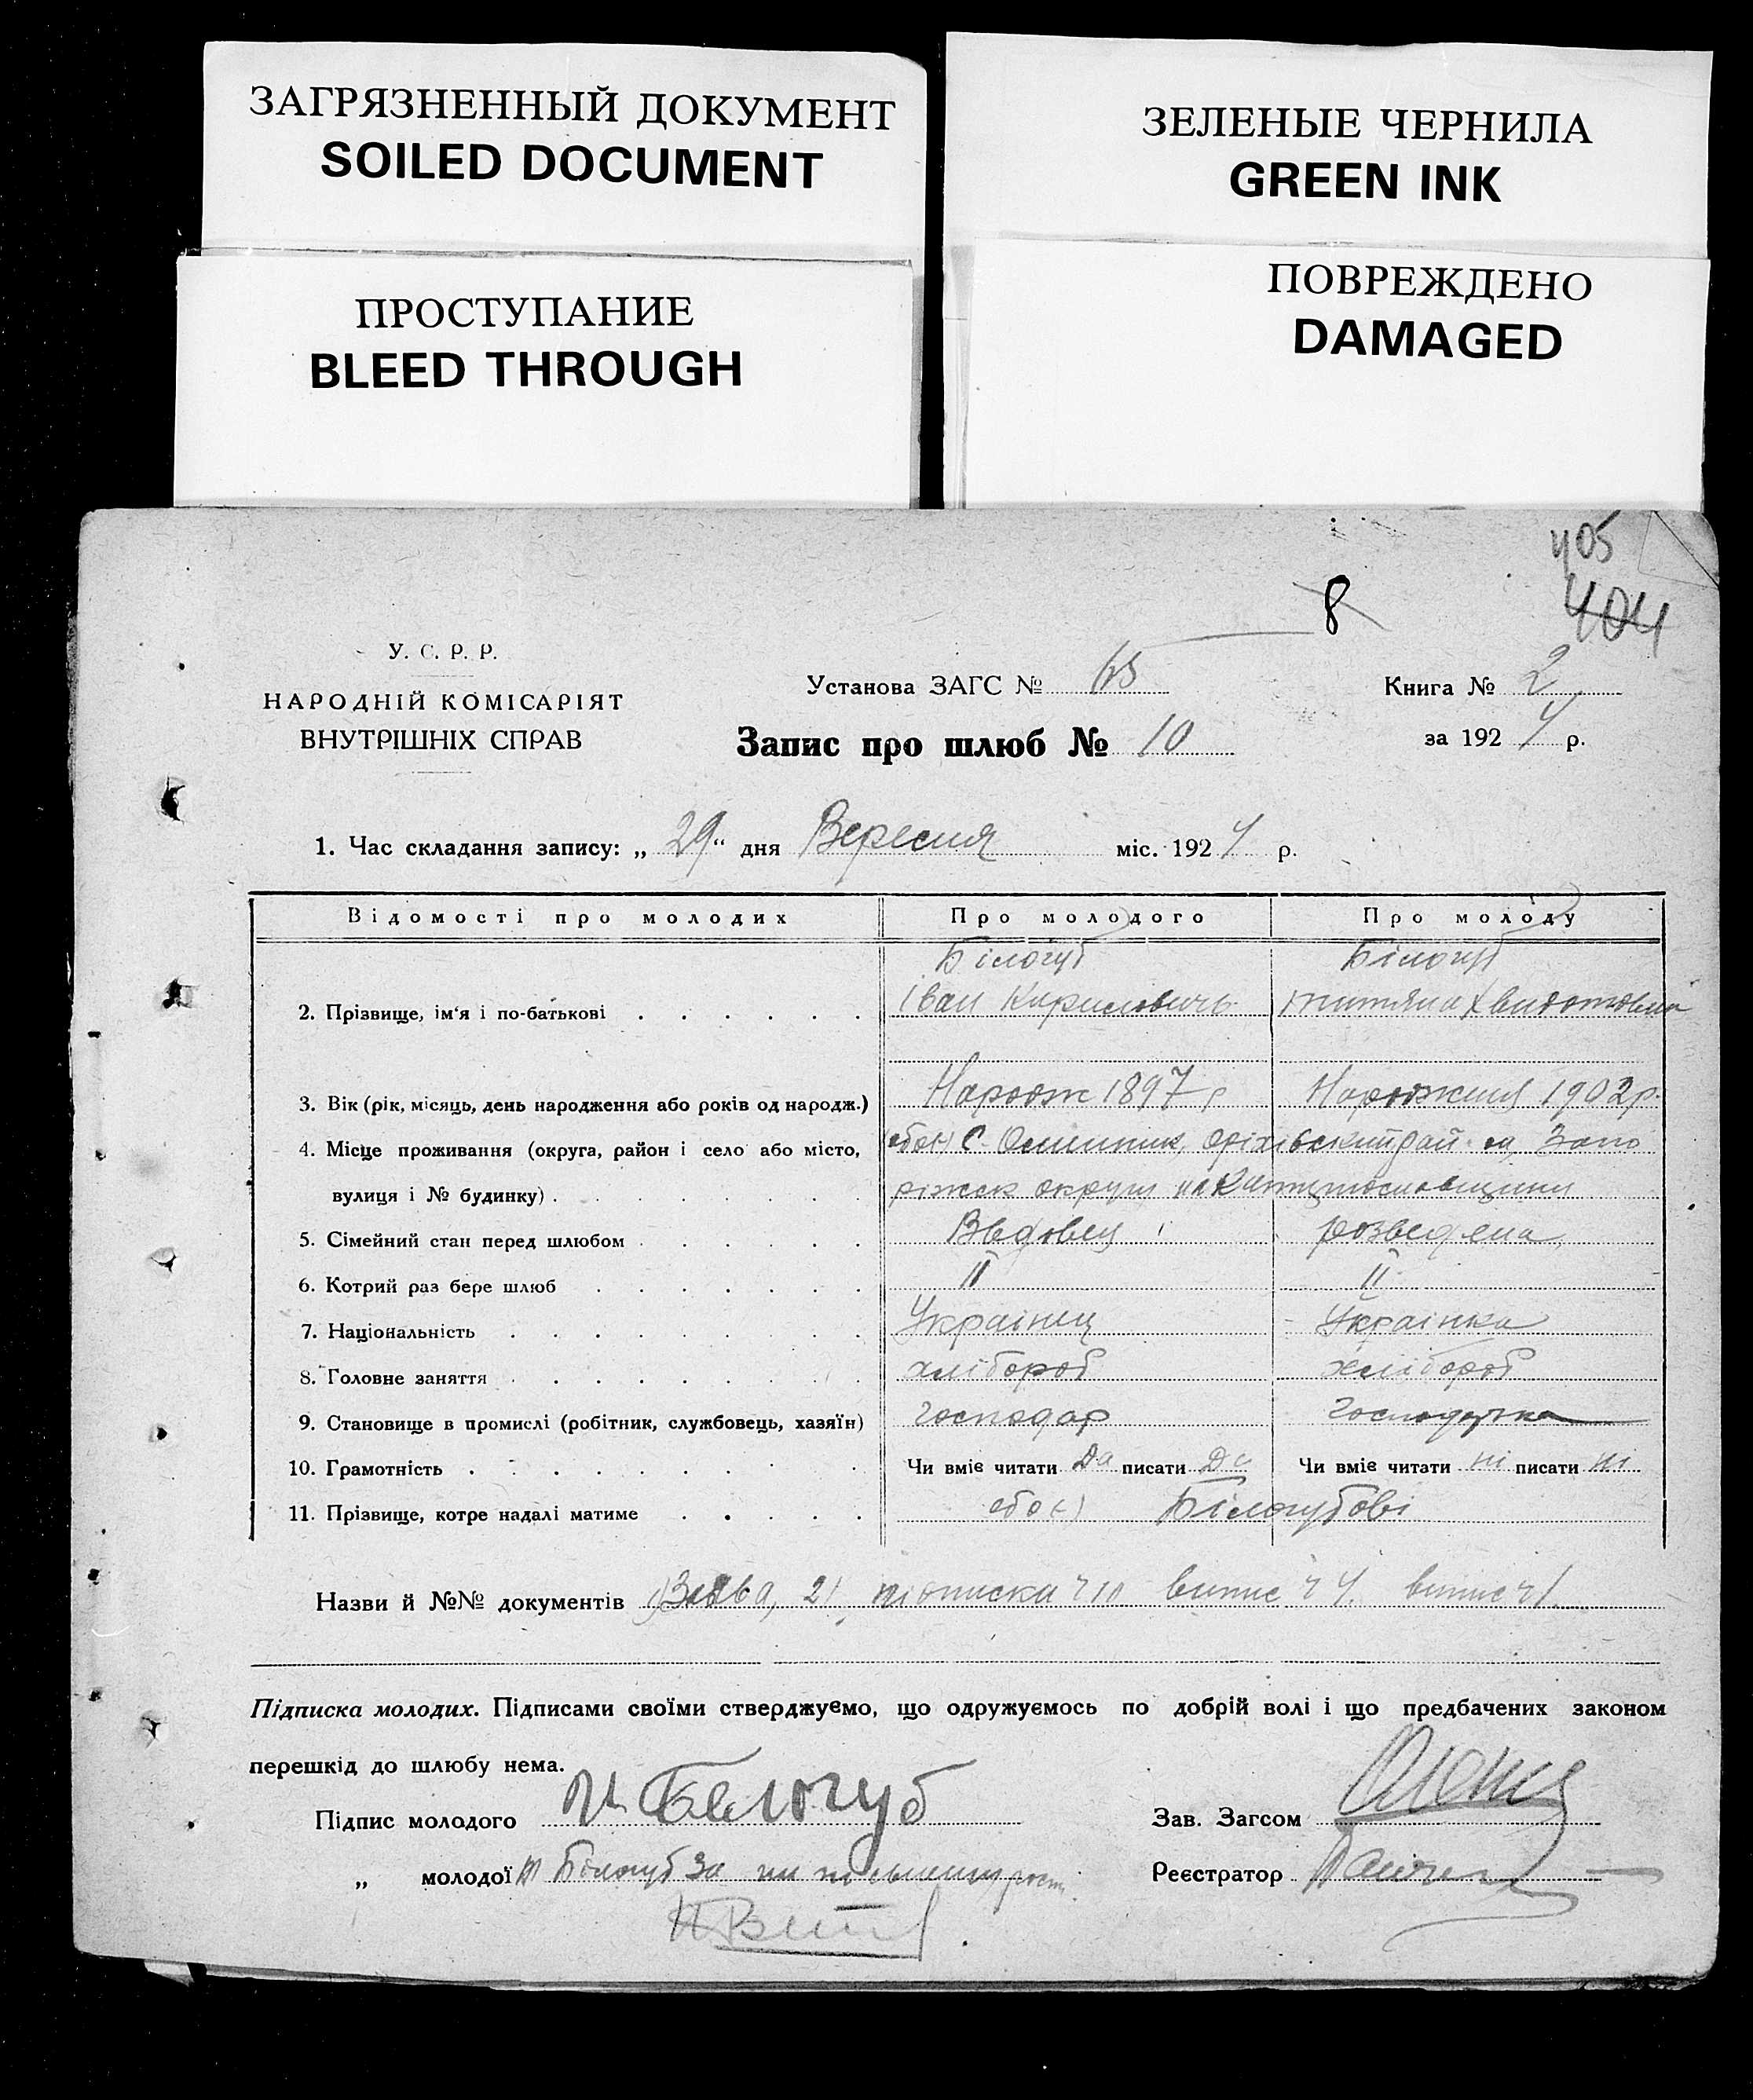 ЗАГРЯЗНЕННЫЙ ДОКУМЕНТ
SOILED DOCUMENT
ЗЕЛЕНЫЕ ЧЕРНИЛА
GREEN INK
ПРОСТУПАНИЕ
BLEED THROUGH
ПОВРЕЖДЕНО
DAMAGED
405
404
8
У. С. Р. Р.
НАРОДНІЙ КОМІСАРІЯТ
ВНУТРІШНІХ СПРАВ
Установа ЗАГС № 65
Книга № 2
Запис про шлюб № 10
за 1924 р.
1. Час складання запису: „ 29 “ дня Вересня міс. 1924 р.
Відомості про молодих Про молодого Про молоду
Білогуб Білогуб
2. Прізвище, ім‘я і по-батькові Іван Кирилович
3. Вік (рік, місяць, день народження або років од народж.) Народж 1897 р Народження 1902 р.
4. Місце проживання (округа, район і село або місто, обоє С. Оріхівский рай Запо
вулиця і № будинку) ріжск округи на Катеринославщини
5. Сімейний стан перед шлюбом Вдовец розведена
6. Котрий раз бере шлюб II II
7. Національність Українец Українка
8. Головне заняття хлібороб хлібороб
9. Становище в промислі (робітник, службовець, хазяїн) господар Господарка
10. Грамотність Чи вміє читати Да писати Да Чи вміє читати ні писати ні
11. Прізвище, котре надалі матиме обоє Білогубові
Назви й №№ документів 1) Заява, 2) підписка ч 10 витяг ч 4. витяг ч 1.
Підписка молодих. Підписами своїми стверджуємо, що одружуємось по добрій волі і що предбачених законом
перешкід до шлюбу нема.
Підпис молодого И Белогуб
Зав. Загсом
„ молодої Білогуб за
Реєстратор